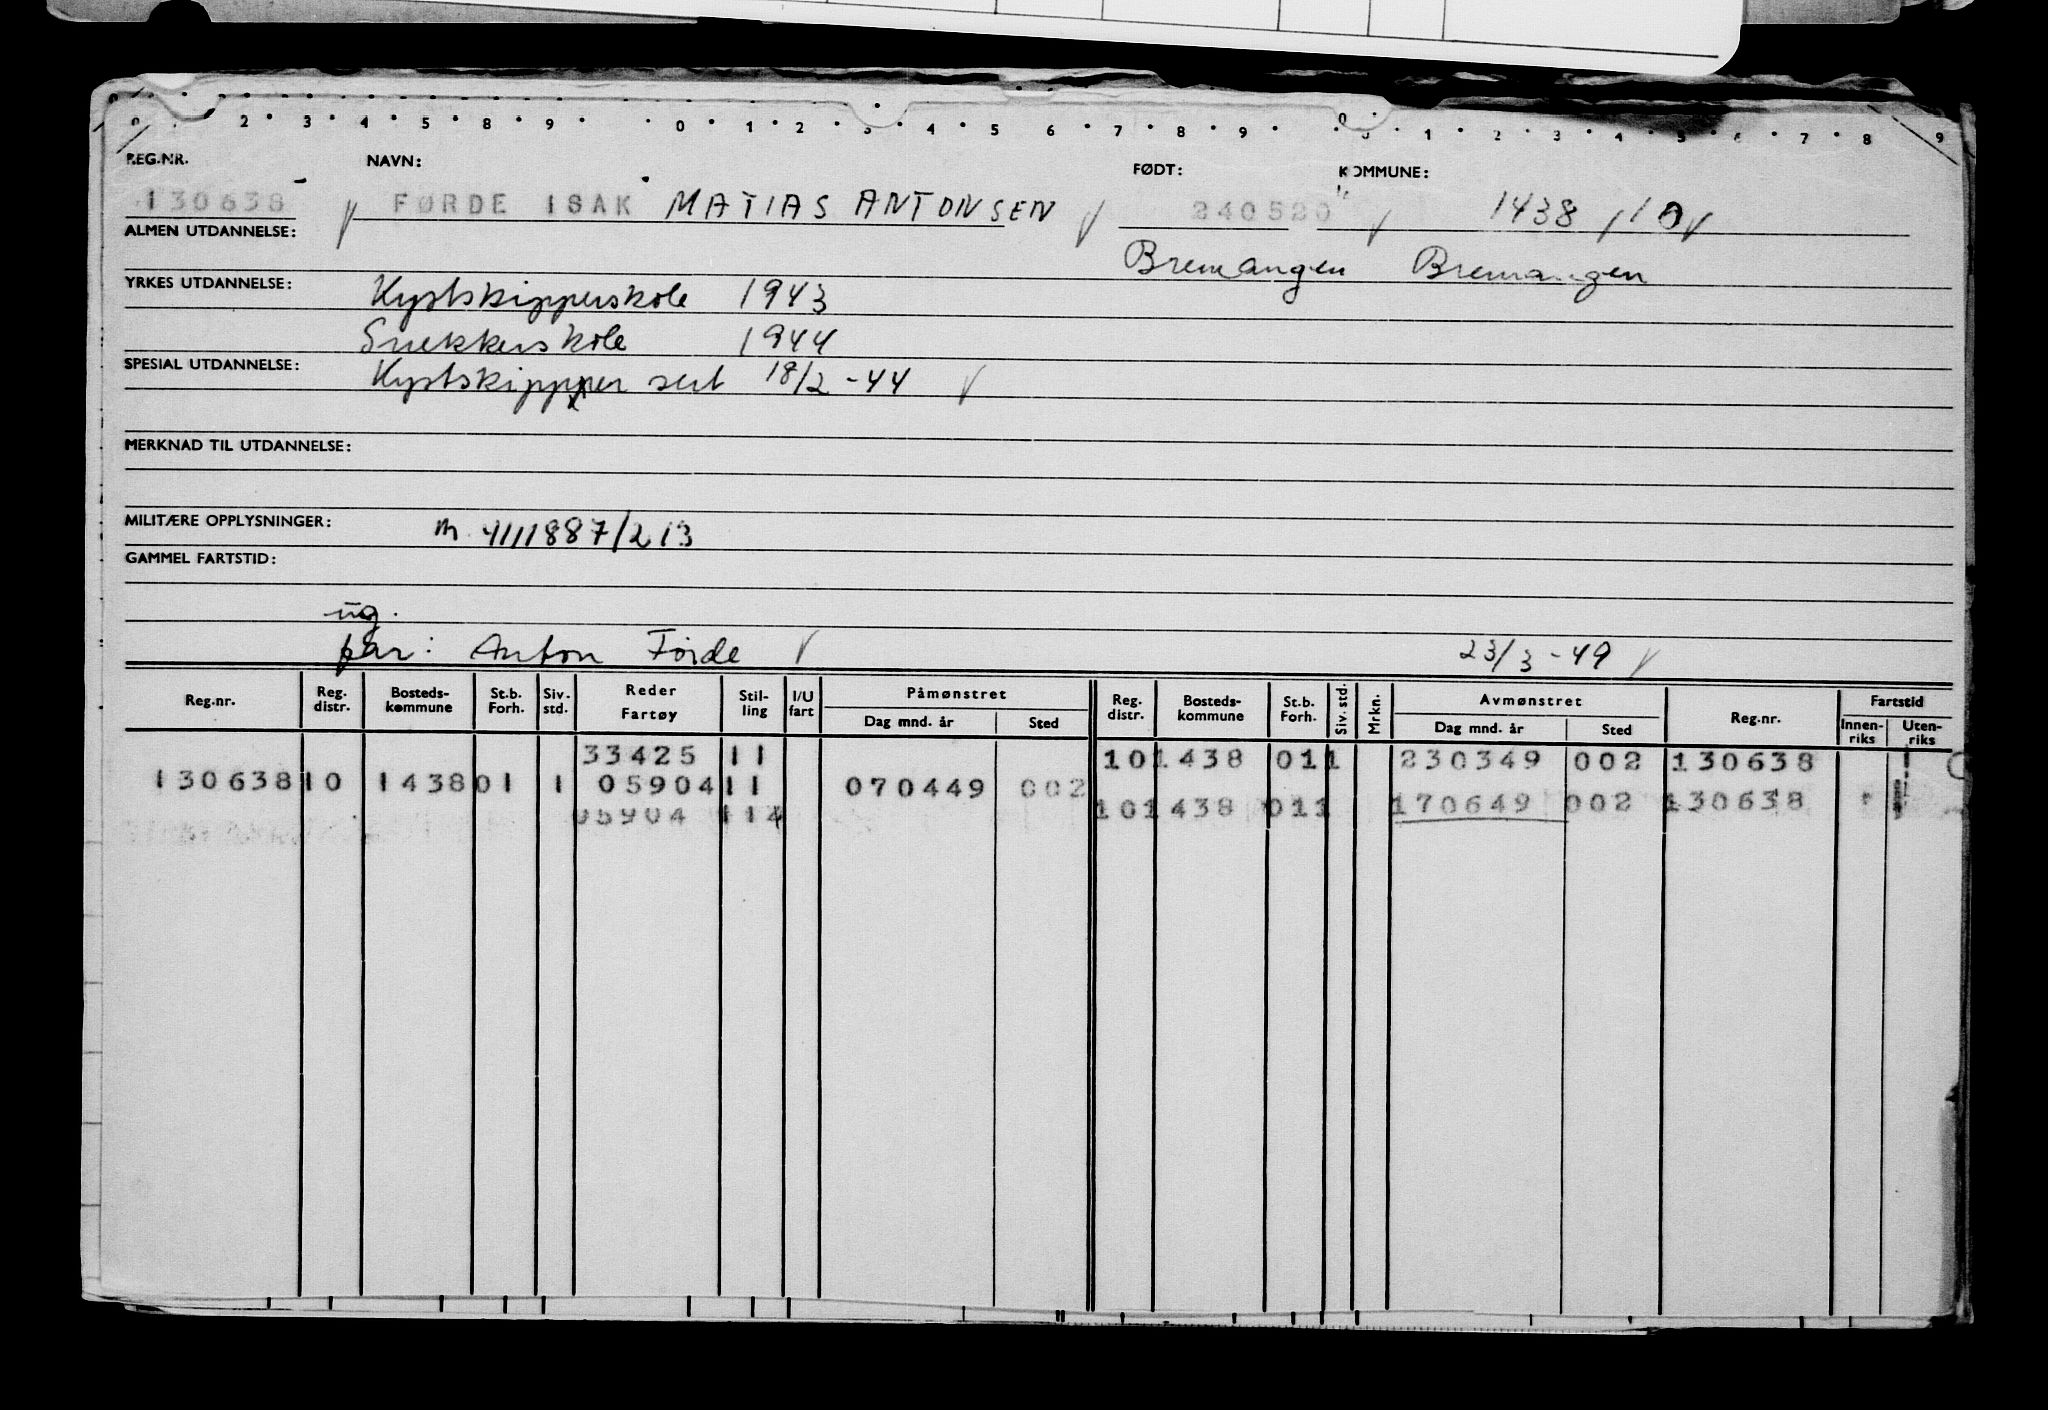 REG.NR. NAVN: FØDT: KOMMUNE:
130638 FØRDE ISAK MATIAS ANTONSEN 240520 1438
ALMEN UTDANNELSE: Bremangen Bremangen
YRKES UTDANNELSE: Kystskipperskole 1943
Snekkerskole 1944
SPESIAL UTDANNELSE: Kystskipper sert 18/2-44
MERKNAD TIL UTDANNELSE:
MILITÆRE OPPLYSNINGER: m. 4111887/213
GAMMEL FARTSTID:
ug.
far: Anton Førde 23/3-49
Reg.nr. Reg. distr. Bosteds-kommune St.b. Forh. Siv. std. Reder Fartøy Stil-ling I/U fart Påmønstret Dag mnd. år Sted Reg. distr. Bosteds-kommune St.b. Forh. Siv. std. Mrkn. Avmønstret Dag mnd. år Sted Reg.nr. Fartstid Innen-riks Uten-riks
33425 11 10 1438 01 1 230349 002 130638
130638 10 1438 01 1 05904 11 070449 002
05904 11 10 1438 01 1 170649 002 130638